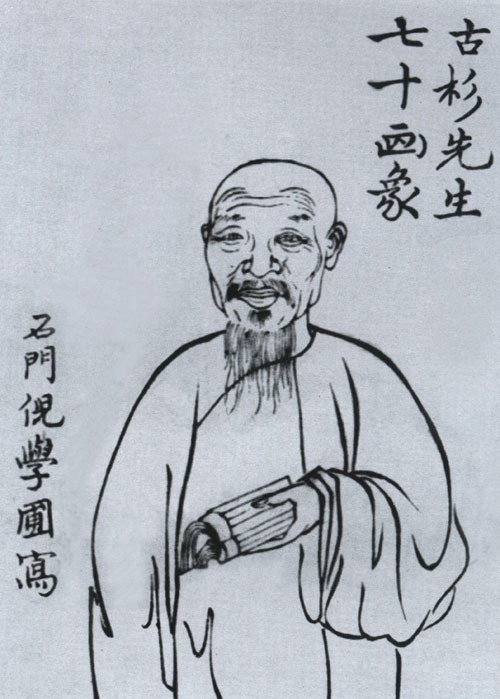 古杉先生
七十画象
石門倪學圃寫